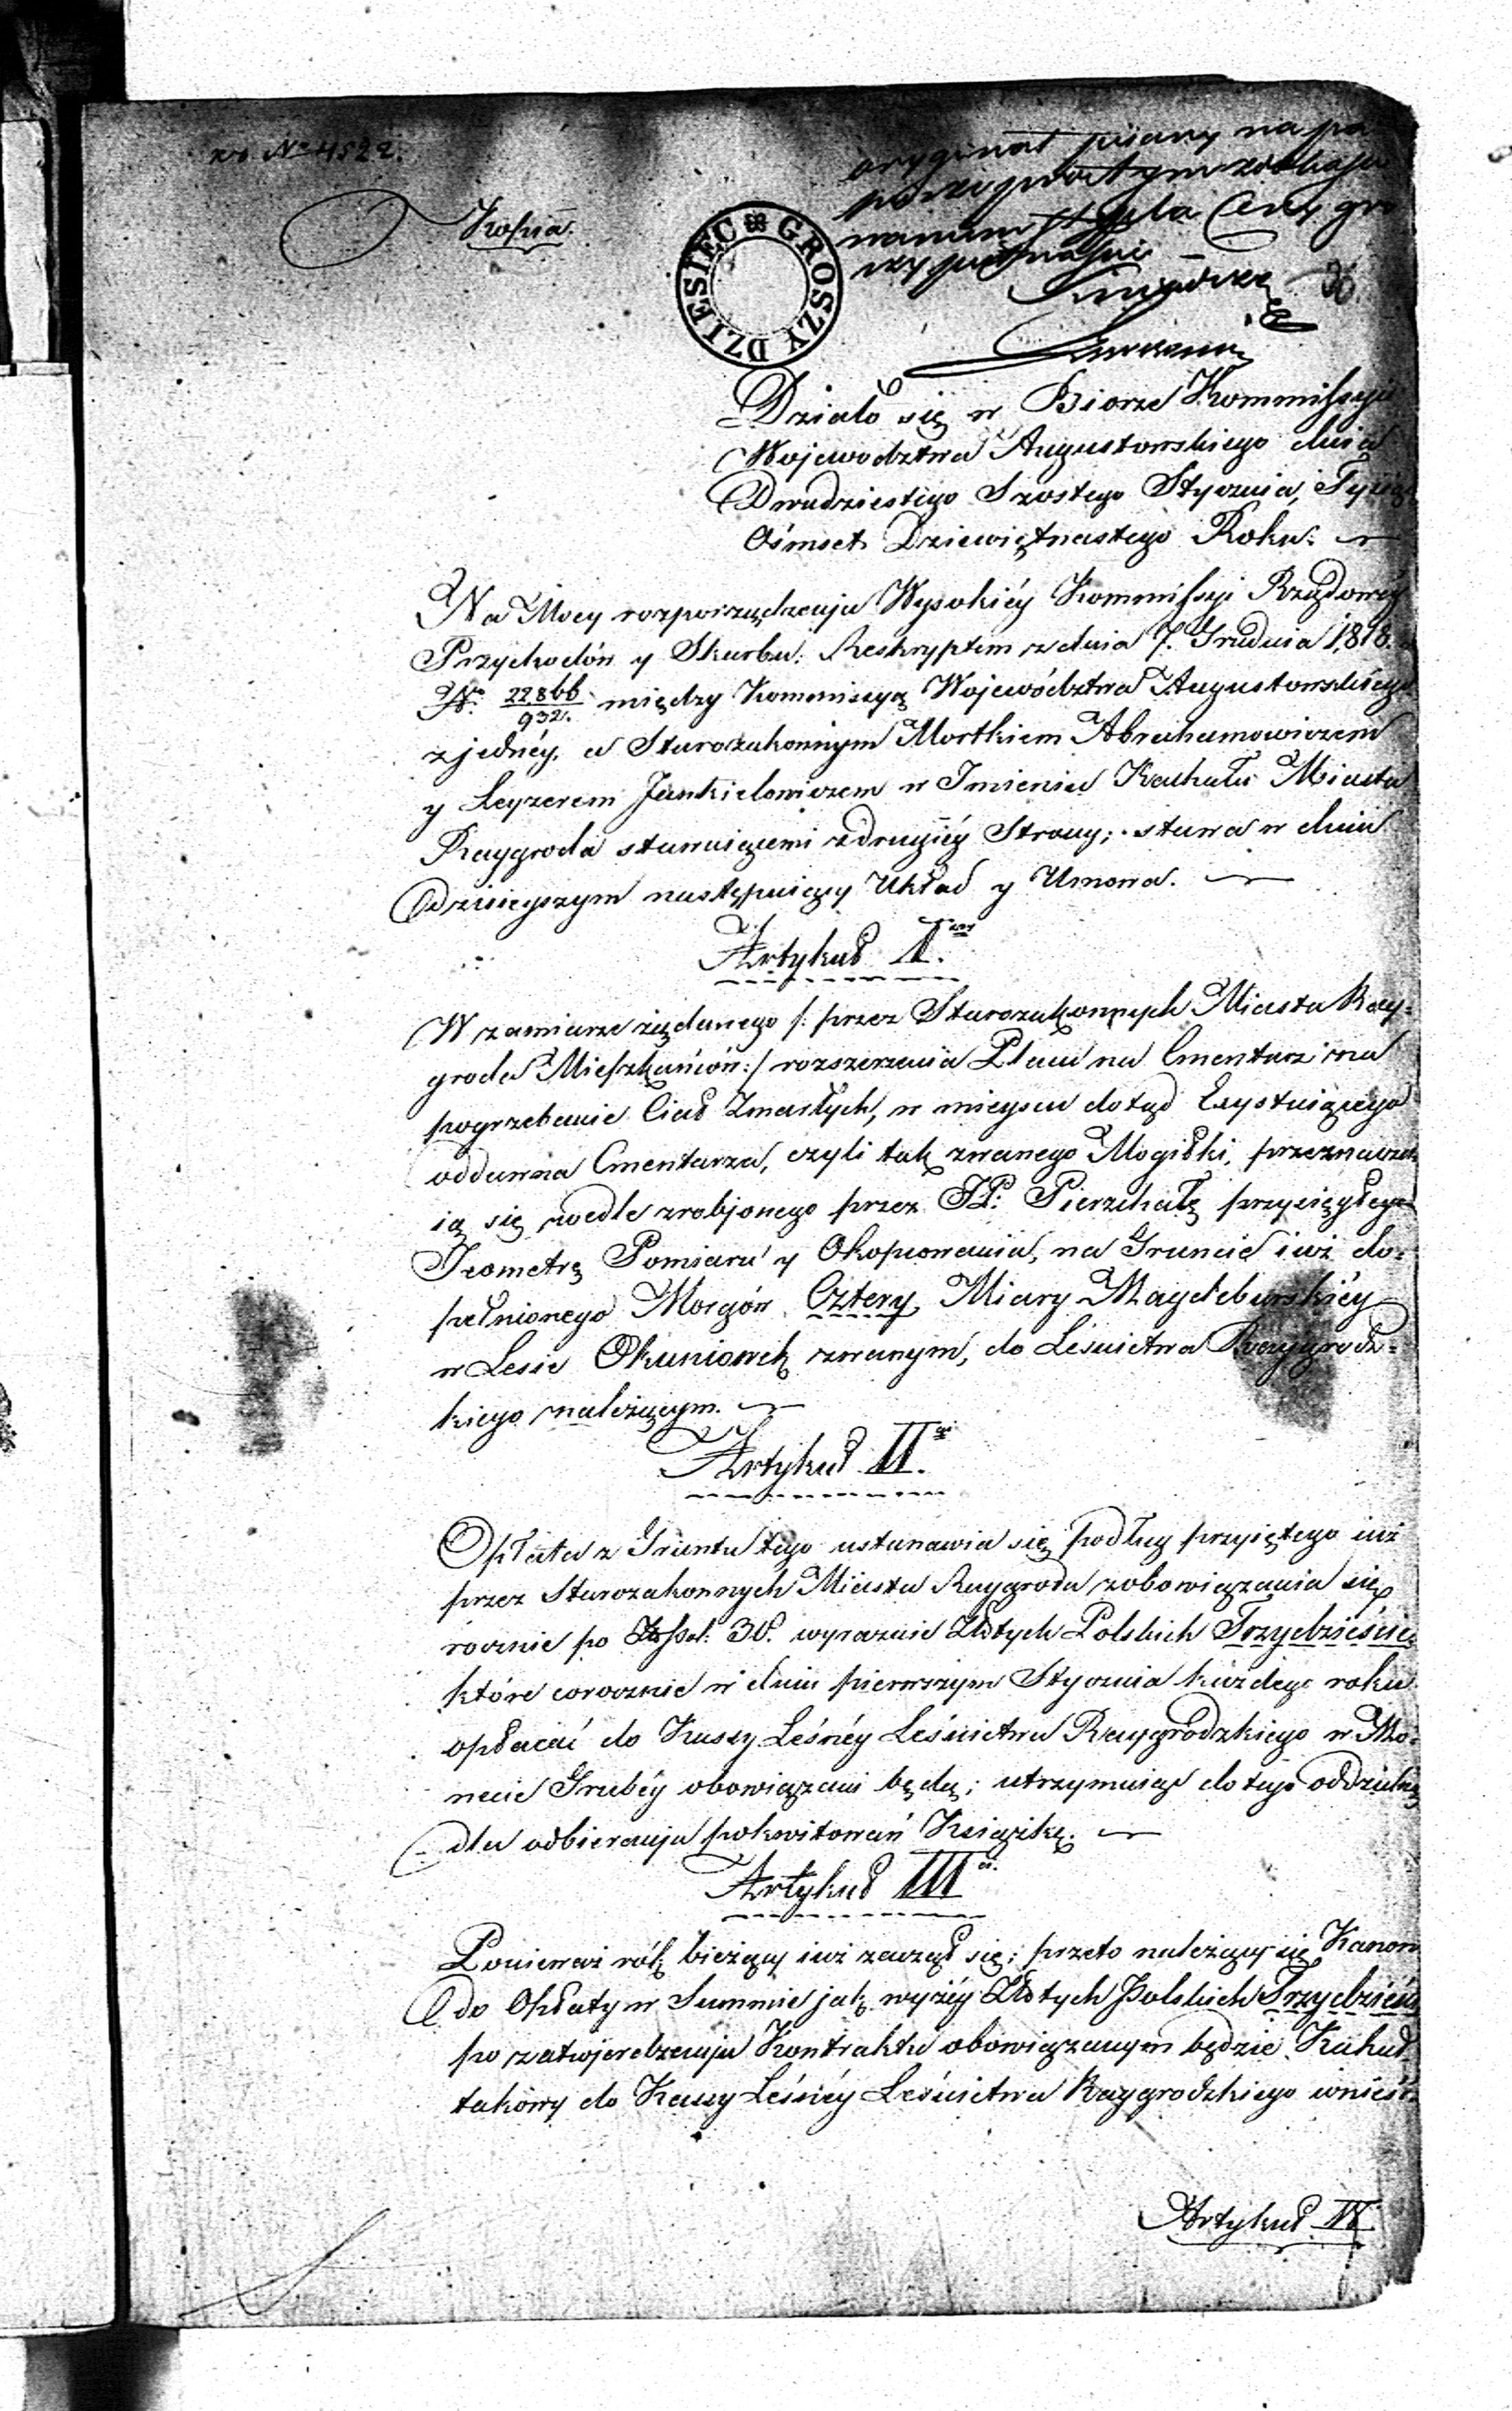 No 4522.
Kopia.
oryginał pisany na pa
DZIESIĘC GROSZY
Działo się w Biorze Kommissyi
Wojewodztwa Augustowskiego dnia
Dwudziestego Szostego Stycznia, Tysiąc
Ośmset Dziewiętnastego Roku.
Na Mocy rozporządzenia Wysokiéy Kommissyi Rządowéy
Przychodów y Skarbu: Reskryptem z dnia 7. Grudnia 1818.
No. 22866/932. między Kommissyą Województwa Augustowskiego
z jednéy, a Starozakonnym Mortkiem Abrahamowiczem
y Leyzerem Jankielowiczem w Imieniu Kachału Miasta
Raygroda stawaiącemi z drugiéy Strony; stawa w dniu
Dzisieyszym następuiący Układ y Umowa.
Artykuł I.wszy
W zamiarze żądanego /: przez Starozakonnych Miasta Ray-
groda Mieszkańców:/ rozszerzenia Placu na Cmentarz na
pogrzebanie Ciał Zmarłych, w mieyscu dotąd Exystuiącego
oddawna Cmentarza, czyli tak zwanego Mogiłki, przeznacza
ią się wedle zrobjonego przez JP. Pierzchałę przysięgłego
Jeometrę Pomiaru y Okopowania, na Gruncie iuż do-
pełnionego Morgów Cztery Miary Magdeburskiéy
w Lesie Okuniowek zwanym, do Leśnictwa Raygrodz-
kiego należącym.
Artykuł II.gi
Opłata z Gruntu tego ustanawia się podług przyiętego iuż
przez Starozakonnych Miasta Raygroda zobowiązania się
rocznie po Złpol: 30. wyraznie Złotych Polskich Trzydzieście
które corocznie w dniu pierwszym Stycznia każdego roku
opłacać do Kassy Leśnéy Leśnictwa Raygrodzkiego w Mo-
necie Grubéy obowiązani będą; utrzymuiąc do tego oddzielną
dla odbierania pokwitowań Książkę.
Artykuł III.ci
Ponieważ rók bieżący iuż zaczął się; przeto należący się Kanon
do Opłaty w Summie jak wyżéy Złotych Polskich Trzydzieście
po zatwjerdzeniu Kontraktu obowiązanym będzie Kahał
takowy do Kassy Leśnéy Leśnictwa Raygrodzkiego wnieść.
Artykuł IV.